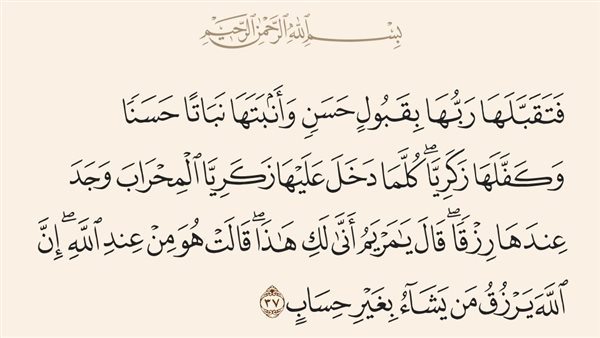 بِسْمِ ٱللَّهِ ٱلرَّحْمَٰنِ ٱلرَّحِيمِ
فَتَقَبَّلَهَا رَبُّهَا بِقَبُولٍ حَسَنٍ وَأَنۢبَتَهَا نَبَاتًا حَسَنًا
وَكَفَّلَهَا زَكَرِيَّا ۖ كُلَّمَا دَخَلَ عَلَيْهَا زَكَرِيَّا ٱلْمِحْرَابَ وَجَدَ
عِندَهَا رِزْقًا ۖ قَالَ يَـٰمَرْيَمُ أَنَّىٰ لَكِ هَـٰذَا ۖ قَالَتْ هُوَ مِنْ عِندِ ٱللَّهِ ۖ إِنَّ
ٱللَّهَ يَرْزُقُ مَن يَشَآءُ بِغَيْرِ حِسَابٍ ٣٧